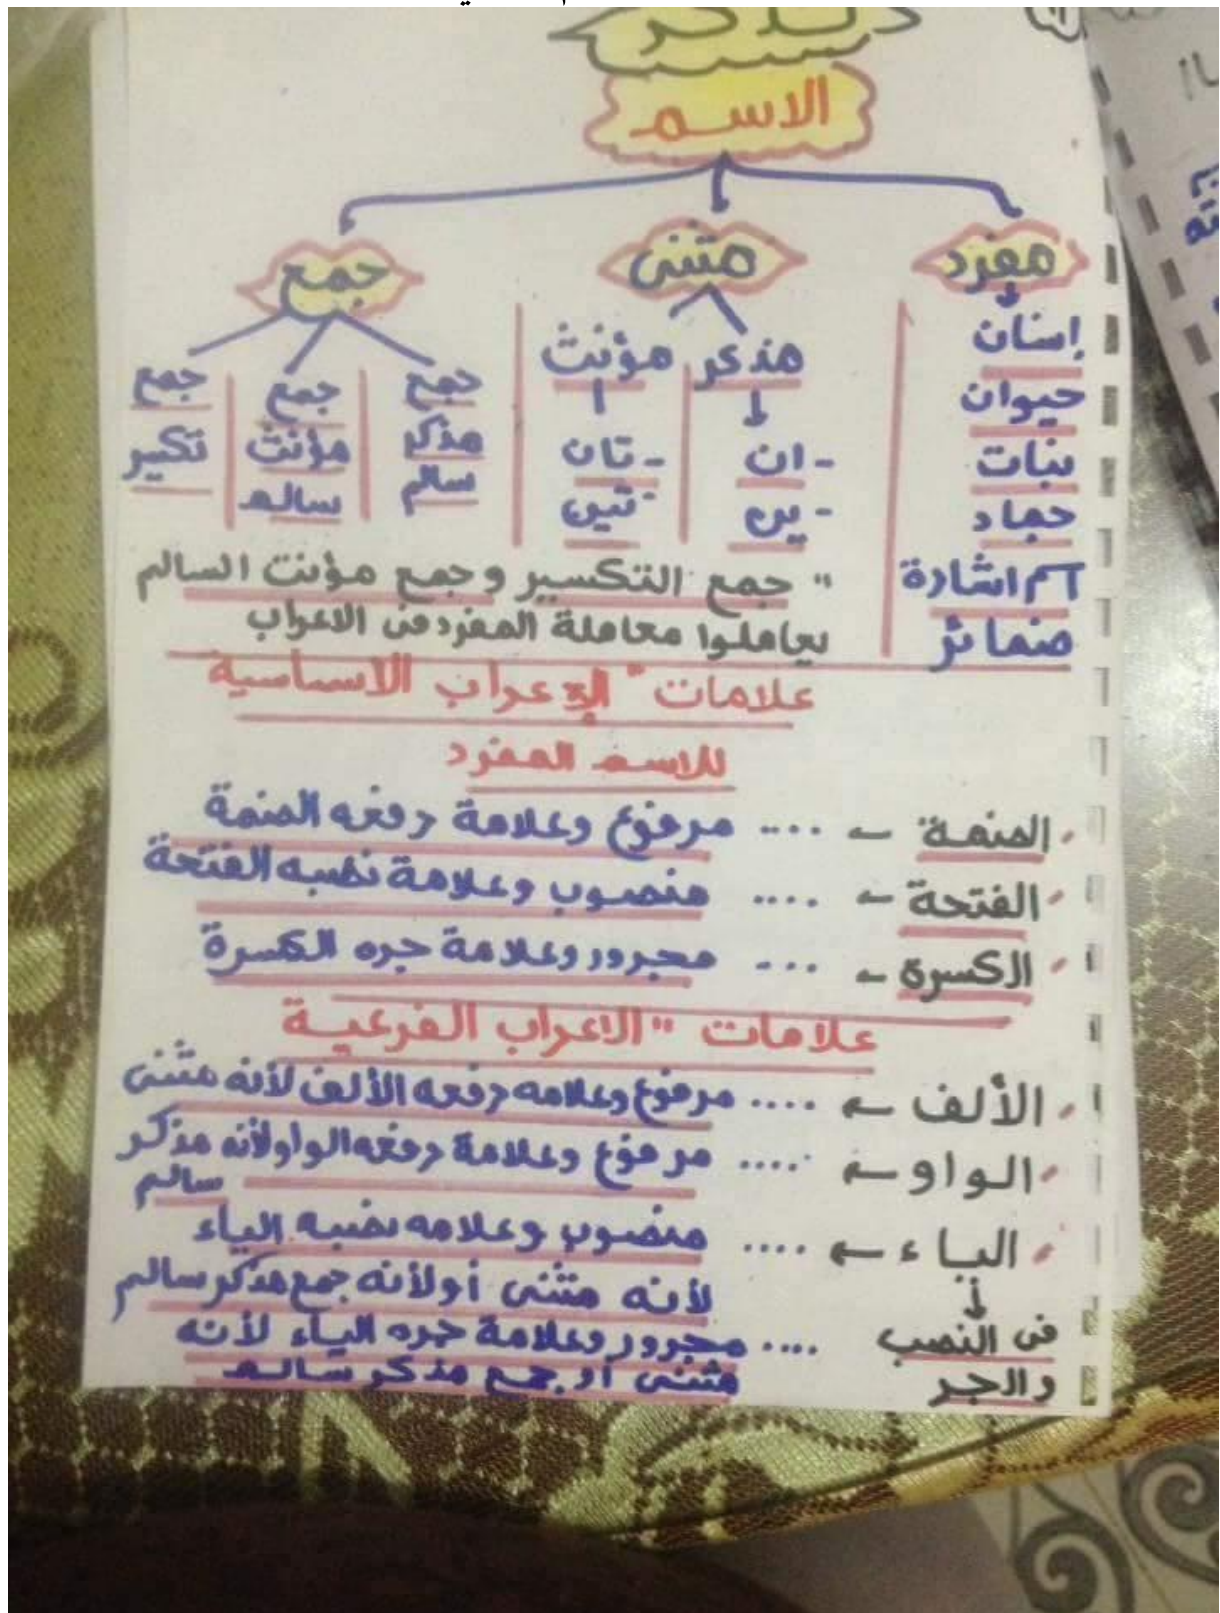 تذكر
الاسم
مفرد مثنى جمع
إنسان
حيوان
نبات
جماد
اسم اشارة
ضمائر
مذكر مؤنث
- ان - تان
- ين - تين
جمع مذكر سالم
جمع مؤنث سالم
جمع تكسير
" جمع التكسير وجمع مؤنث السالم
يعاملوا معاملة المفرد فى الاعراب
علامات " الإعراب الاساسية
للاسم المفرد
الضمة ← .... مرفوع وعلامة رفعه الضمة
الفتحة ← .... منصوب وعلامة نصبه الفتحة
الكسرة ← .... مجرور وعلامة جره الكسرة
علامات " الاعراب الفرعية
الألف ← .... مرفوع وعلامه رفعه الألف لأنه مثنى
الواو ← .... مرفوع وعلامة رفعه الواو لأنه مذكر
سالم
الياء ← .... منصوب وعلامه نصبه الياء
لأنه مثنى أو لأنه جمع مذكر سالم
فى النصب .... مجرور وعلامة جره الياء لأنه
والجر مثنى أو جمع مذكر سالم